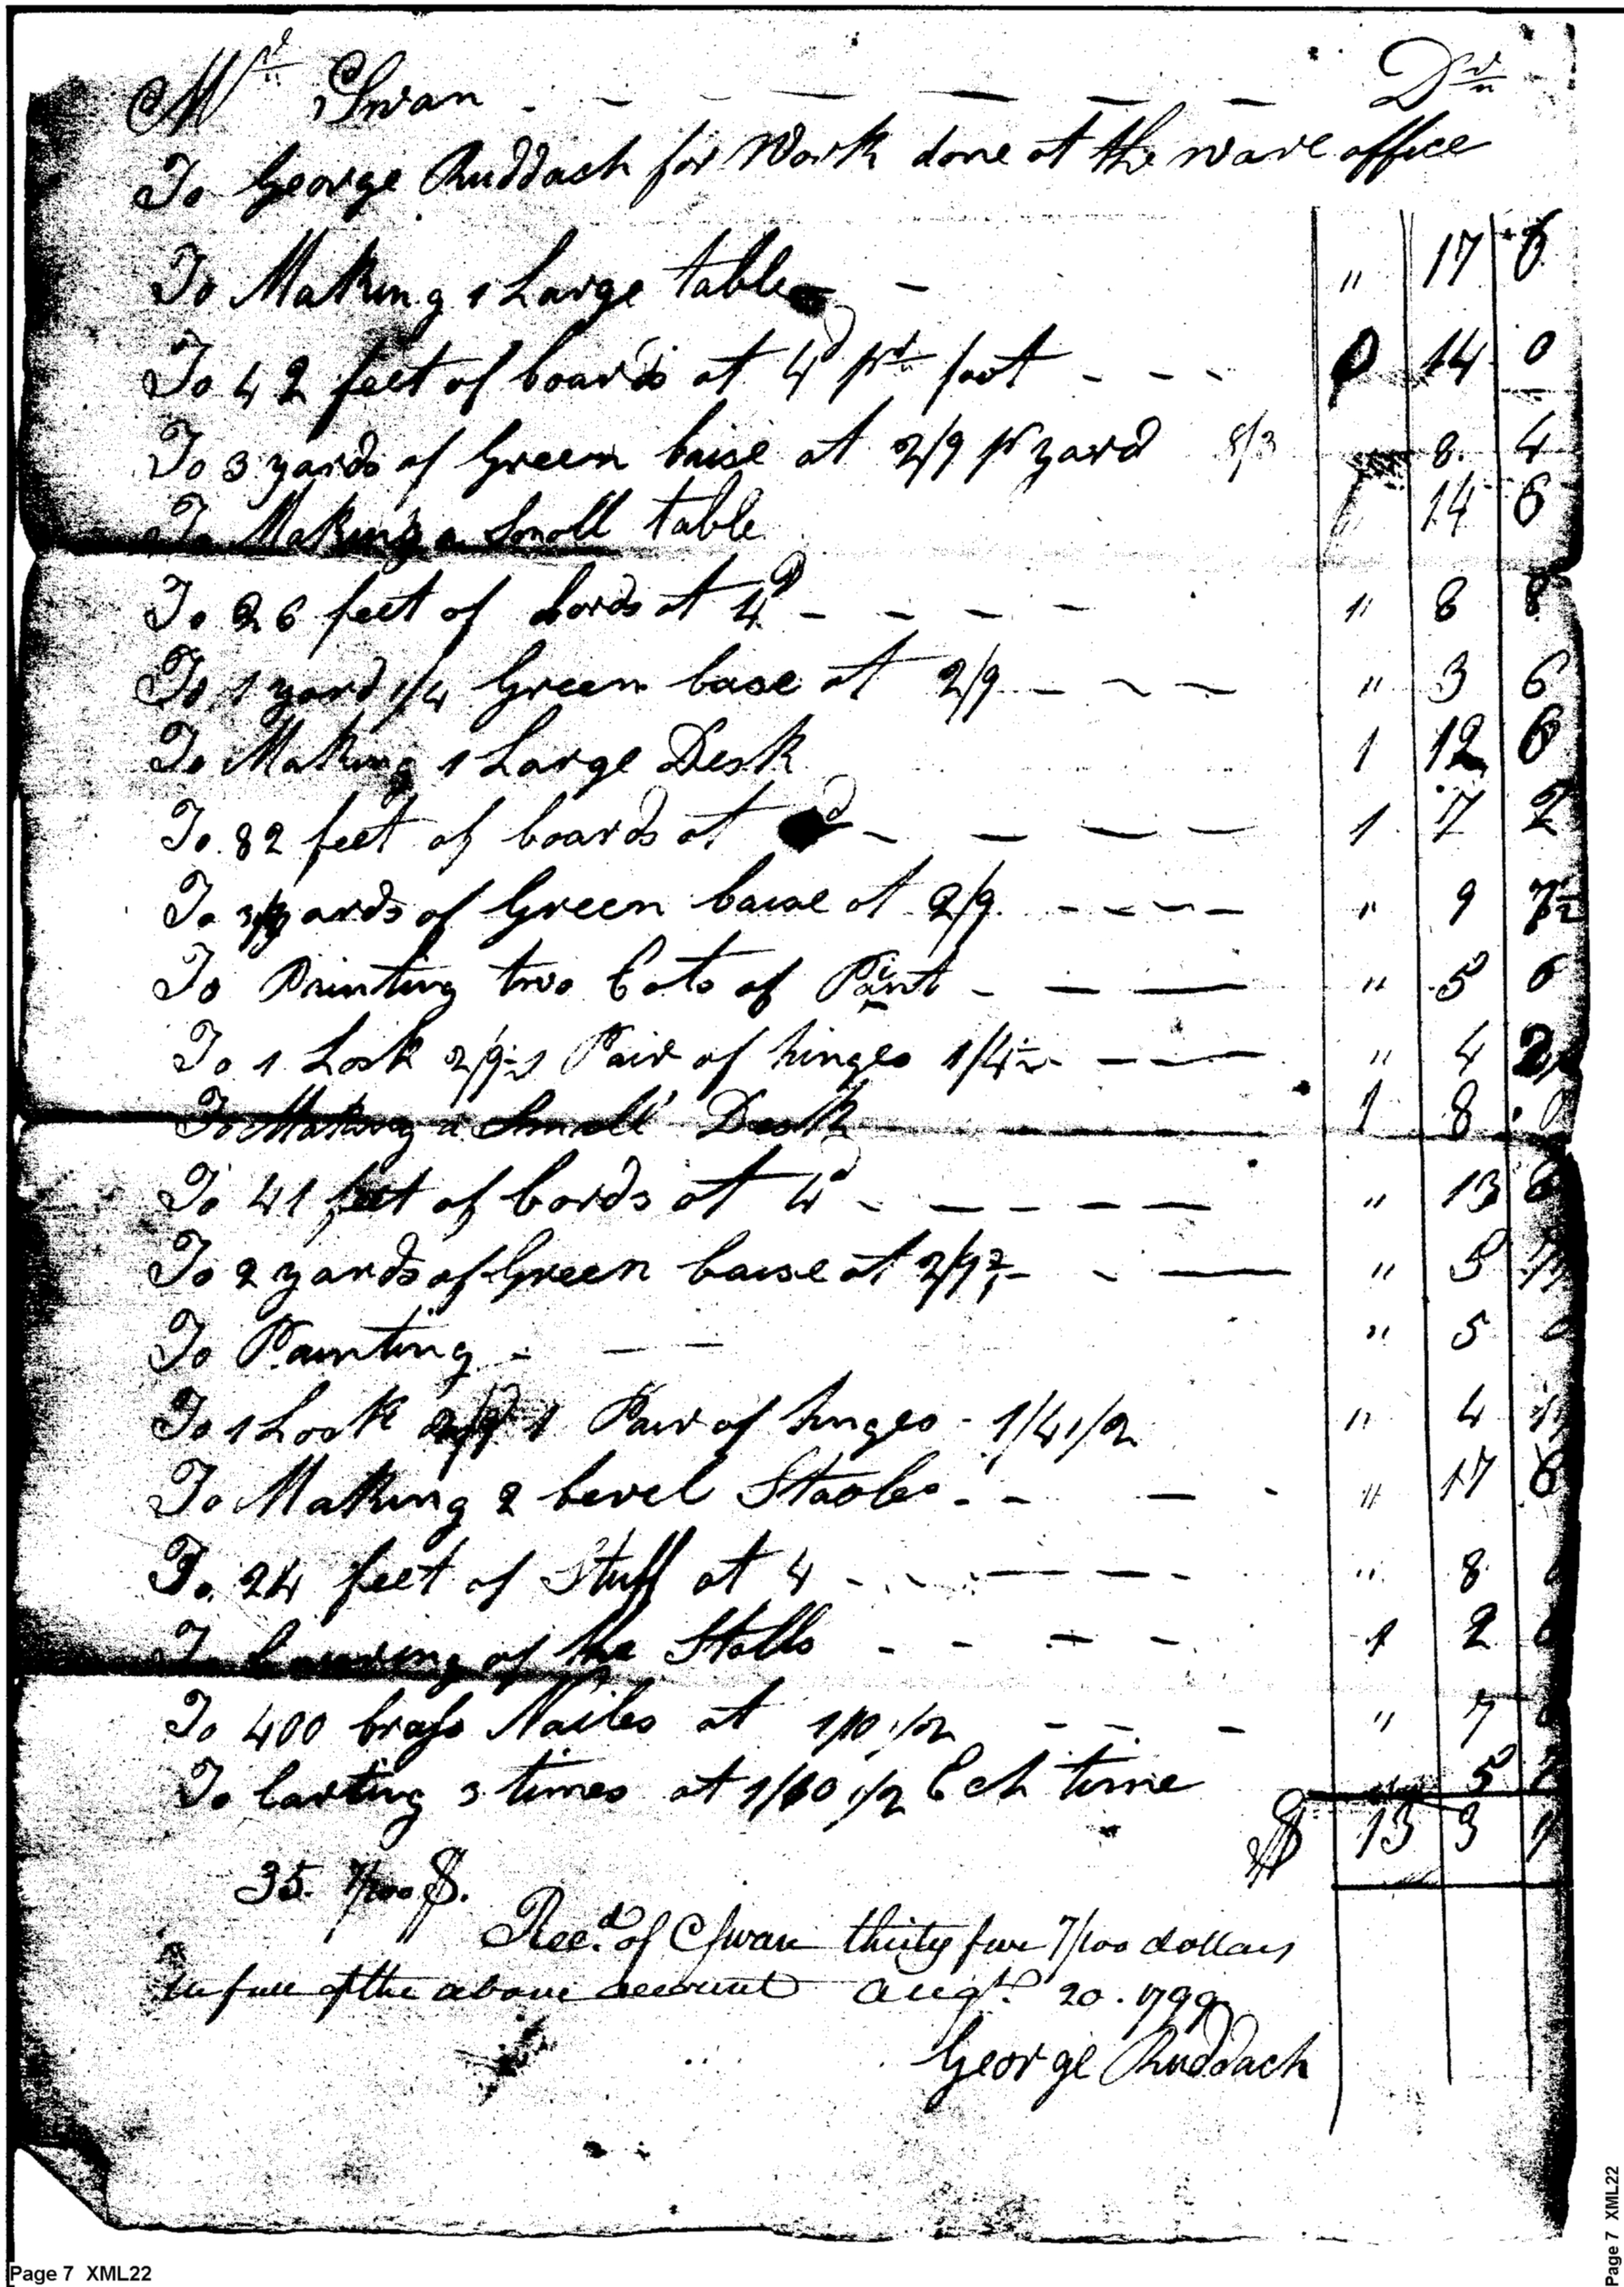 Mr Swan Dr
To George Ruddach for Work done at the ware office
To Making 1 Large table " 17 6
To 42 feet of boards at 4d pr foot 0 14 0
To 3 yards of Green baise at 2/9 pr yard 8/3 8 4
To Making a Small table 14 6
To 26 feet of bords at 4d " 8 8
To 1 yard 1/4 Green base at 2/9 " 3 6
To Making 1 Large Desk 1 12 6
To 82 feet of boards at d 1 7 2
To yards of Green baise at 2/9 " 9 7½
To Painting two Cots of Paint " 5 6
To 1 Lock 2/9 1 Pair of hinges 1/4½ " 4
To Making a Small Desk 1 8
To 41 feet of bords at 4d " 13
To 2 yards of Green baise at " 5
To Painting " 5
To 1 Lock 1 Pair of hinges 1/4 1/2 " 4
To Making 2 bevel Stooles " 17 6
To 24 feet of Stuff at 4 " 8
To of the Stolls 1 2
To 400 brass Nailes at 1/10 1/2 " 7
To Carting 3 times at 1/10 1/2 Ech time 5
$ 13 3 1
35. 7/100 $.
Recd. of C Swan thirty five 7/100 dollars
in full of the above account Augt. 20. 1799
George Ruddach
Page 7 XML22
Page 7 XML22